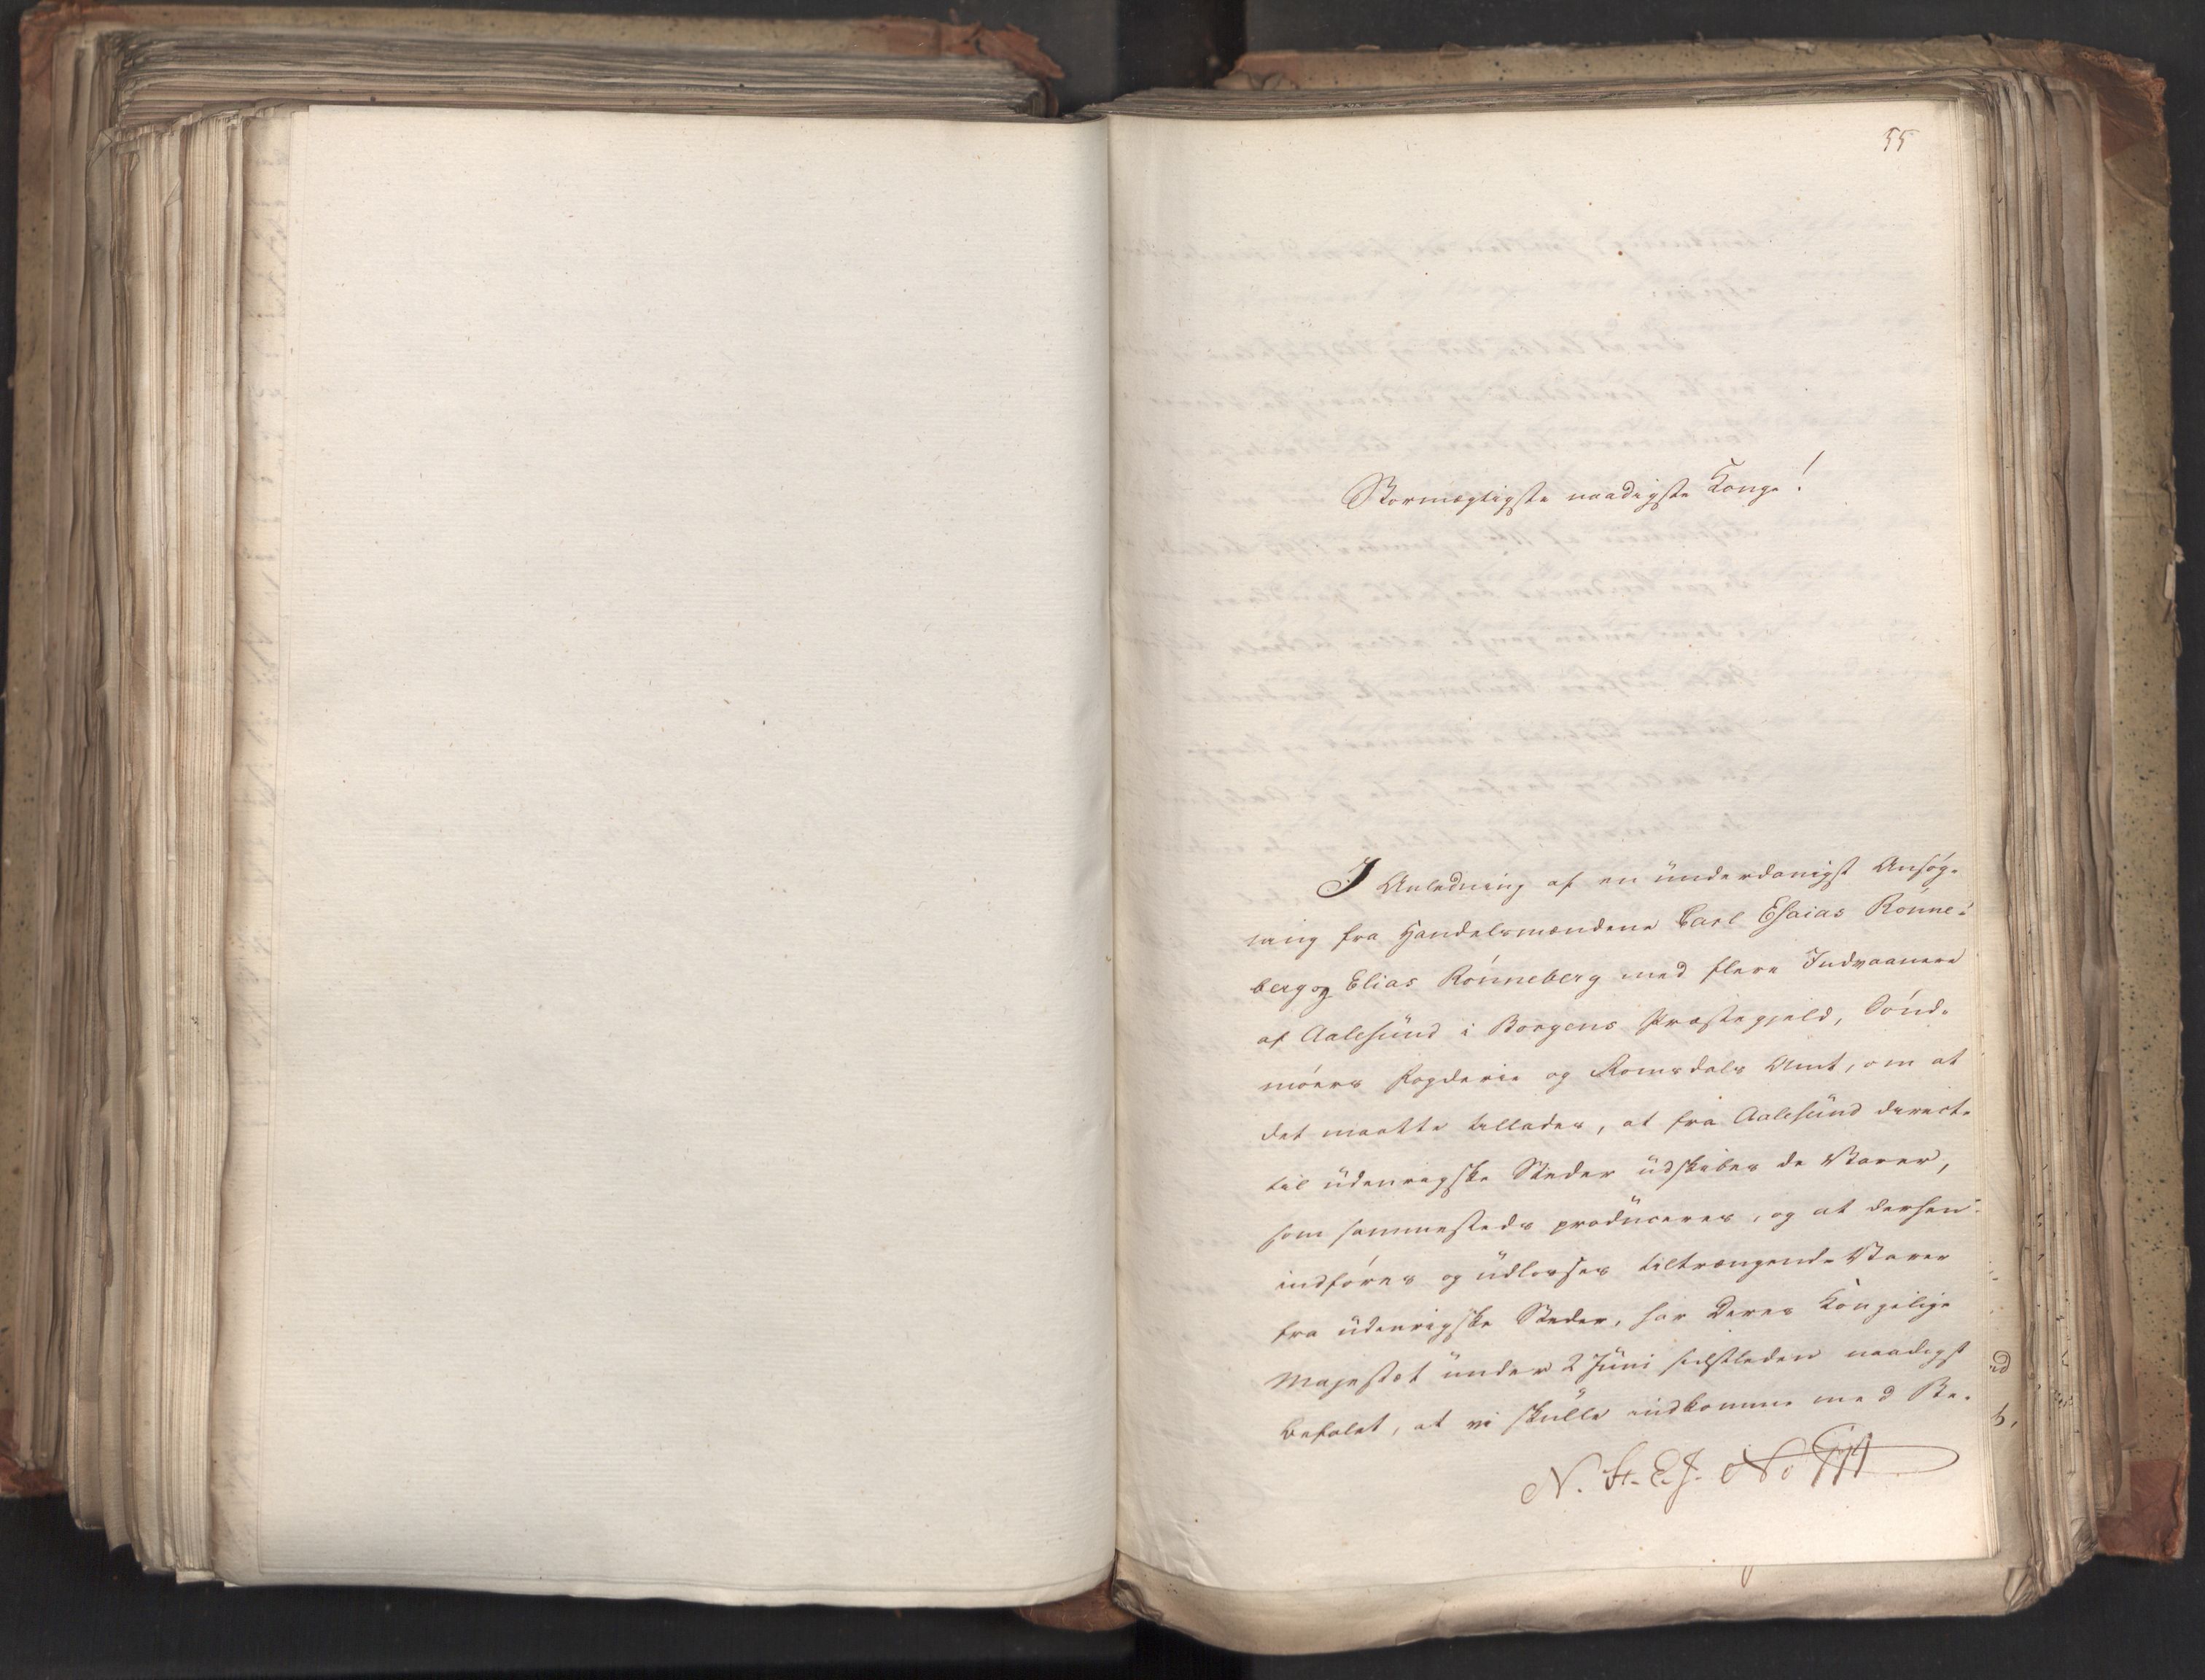 55
Stormægtigste naadigste Konge!
I Anledning af en ünderdanigst Ansøg-
ning fra Handelsmændene Carl Esaias Rønne-
berg og Elias Rønneberg med flere Indvaanere
af Aalesünd i Borgens Præstegjeld, Sønd-
møers Fogderie og Romsdals Amt, om at
det maatte tillades, at fra Aalesünd directe
til üdenrigske Steder üdskibes de Varer,
som sammesteds prodüceres, og at dersen-
indføres og üdlosses tiltrængende Varer
fra üdenrigske Steder, har Deres Kongelige
Majestæt ünder 2 Jüni sidstleden naadigst
befalet, at vi skülle indkomme med Be-